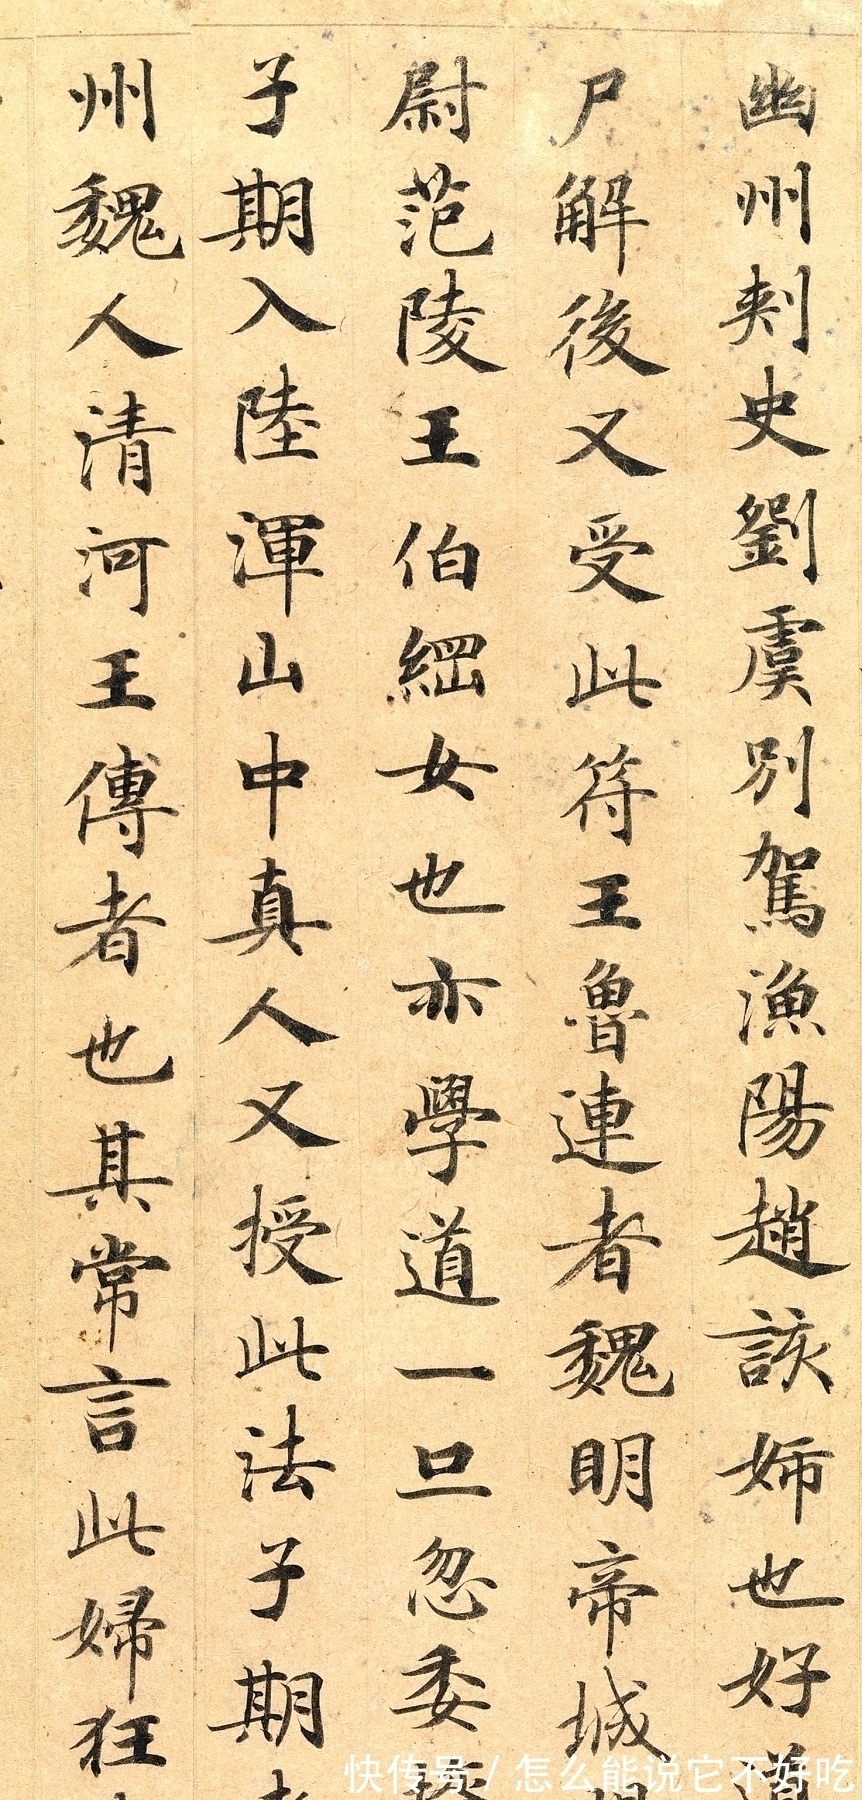 幽州刾史劉虞別駕漁陽趙該姉也好道
尸解後又受此符王魯連者魏明帝城
尉范陵王伯綱女也亦學道一旦忽委
子期入陸渾山中真人又授此法子期
州魏人清河王傅者也其常言此婦狂
快传号/怎么能说它不好吃